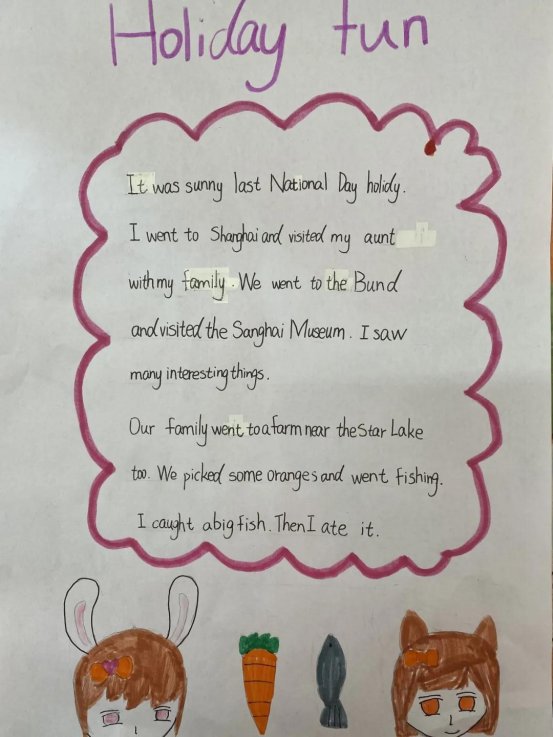 Holiday fun
It was sunny last National Day holidy.
I went to Sharghai and visited my aunt
with my family. We went to the Bund
and visited the Sanghai Museum. I saw
many interesting things.
Our family went to a farm near the Star Lake
too. We picked some oranges and went fishing.
I caught a big fish. Then I ate it.